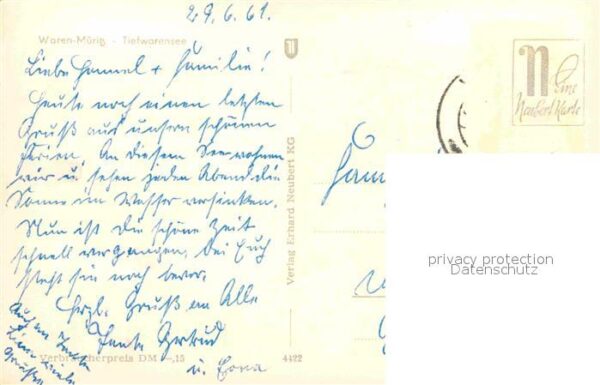 29.6.61.
Waren-Müritz - Tiefwarensee
Liebe Hannel + Familie!
Heute noch einen letzten
Gruß aus unsern schönen
Ferien. An diesem See wohnen
wir u. sehen jeden Abend die
Sonne im Wasser versinken.
Nun ist die schöne Zeit
schnell vergangen, bei Euch
steht sie noch bevor.
Herzl. Gruß an Alle
Tante Gertrud
u.
Auch an
viele
Grüße
Verbraucherpreis DM -,15
4422
Verlag Erhard Neubert KG
N Eine
Neubert Karte
Fam
privacy protection
Datenschutz